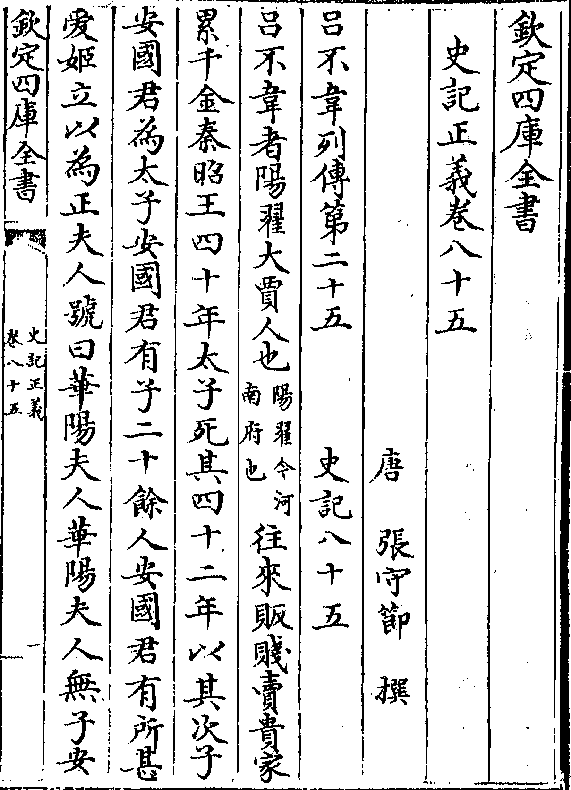 欽定四庫全書
史記正義卷八十五
唐 張守節 撰
吕不韋列傳第二十五 史記八十五
吕不韋者陽翟大賈人也陽翟今河南府也往來販賤賣貴家
累千金秦昭王四十年太子死其四十二年以其次子
安國君為太子安國君有子二十餘人安國君有所甚
愛姬立以為正夫人號曰華陽夫人華陽夫人無子安
欽定四庫全書
史記正義
卷八十五
一